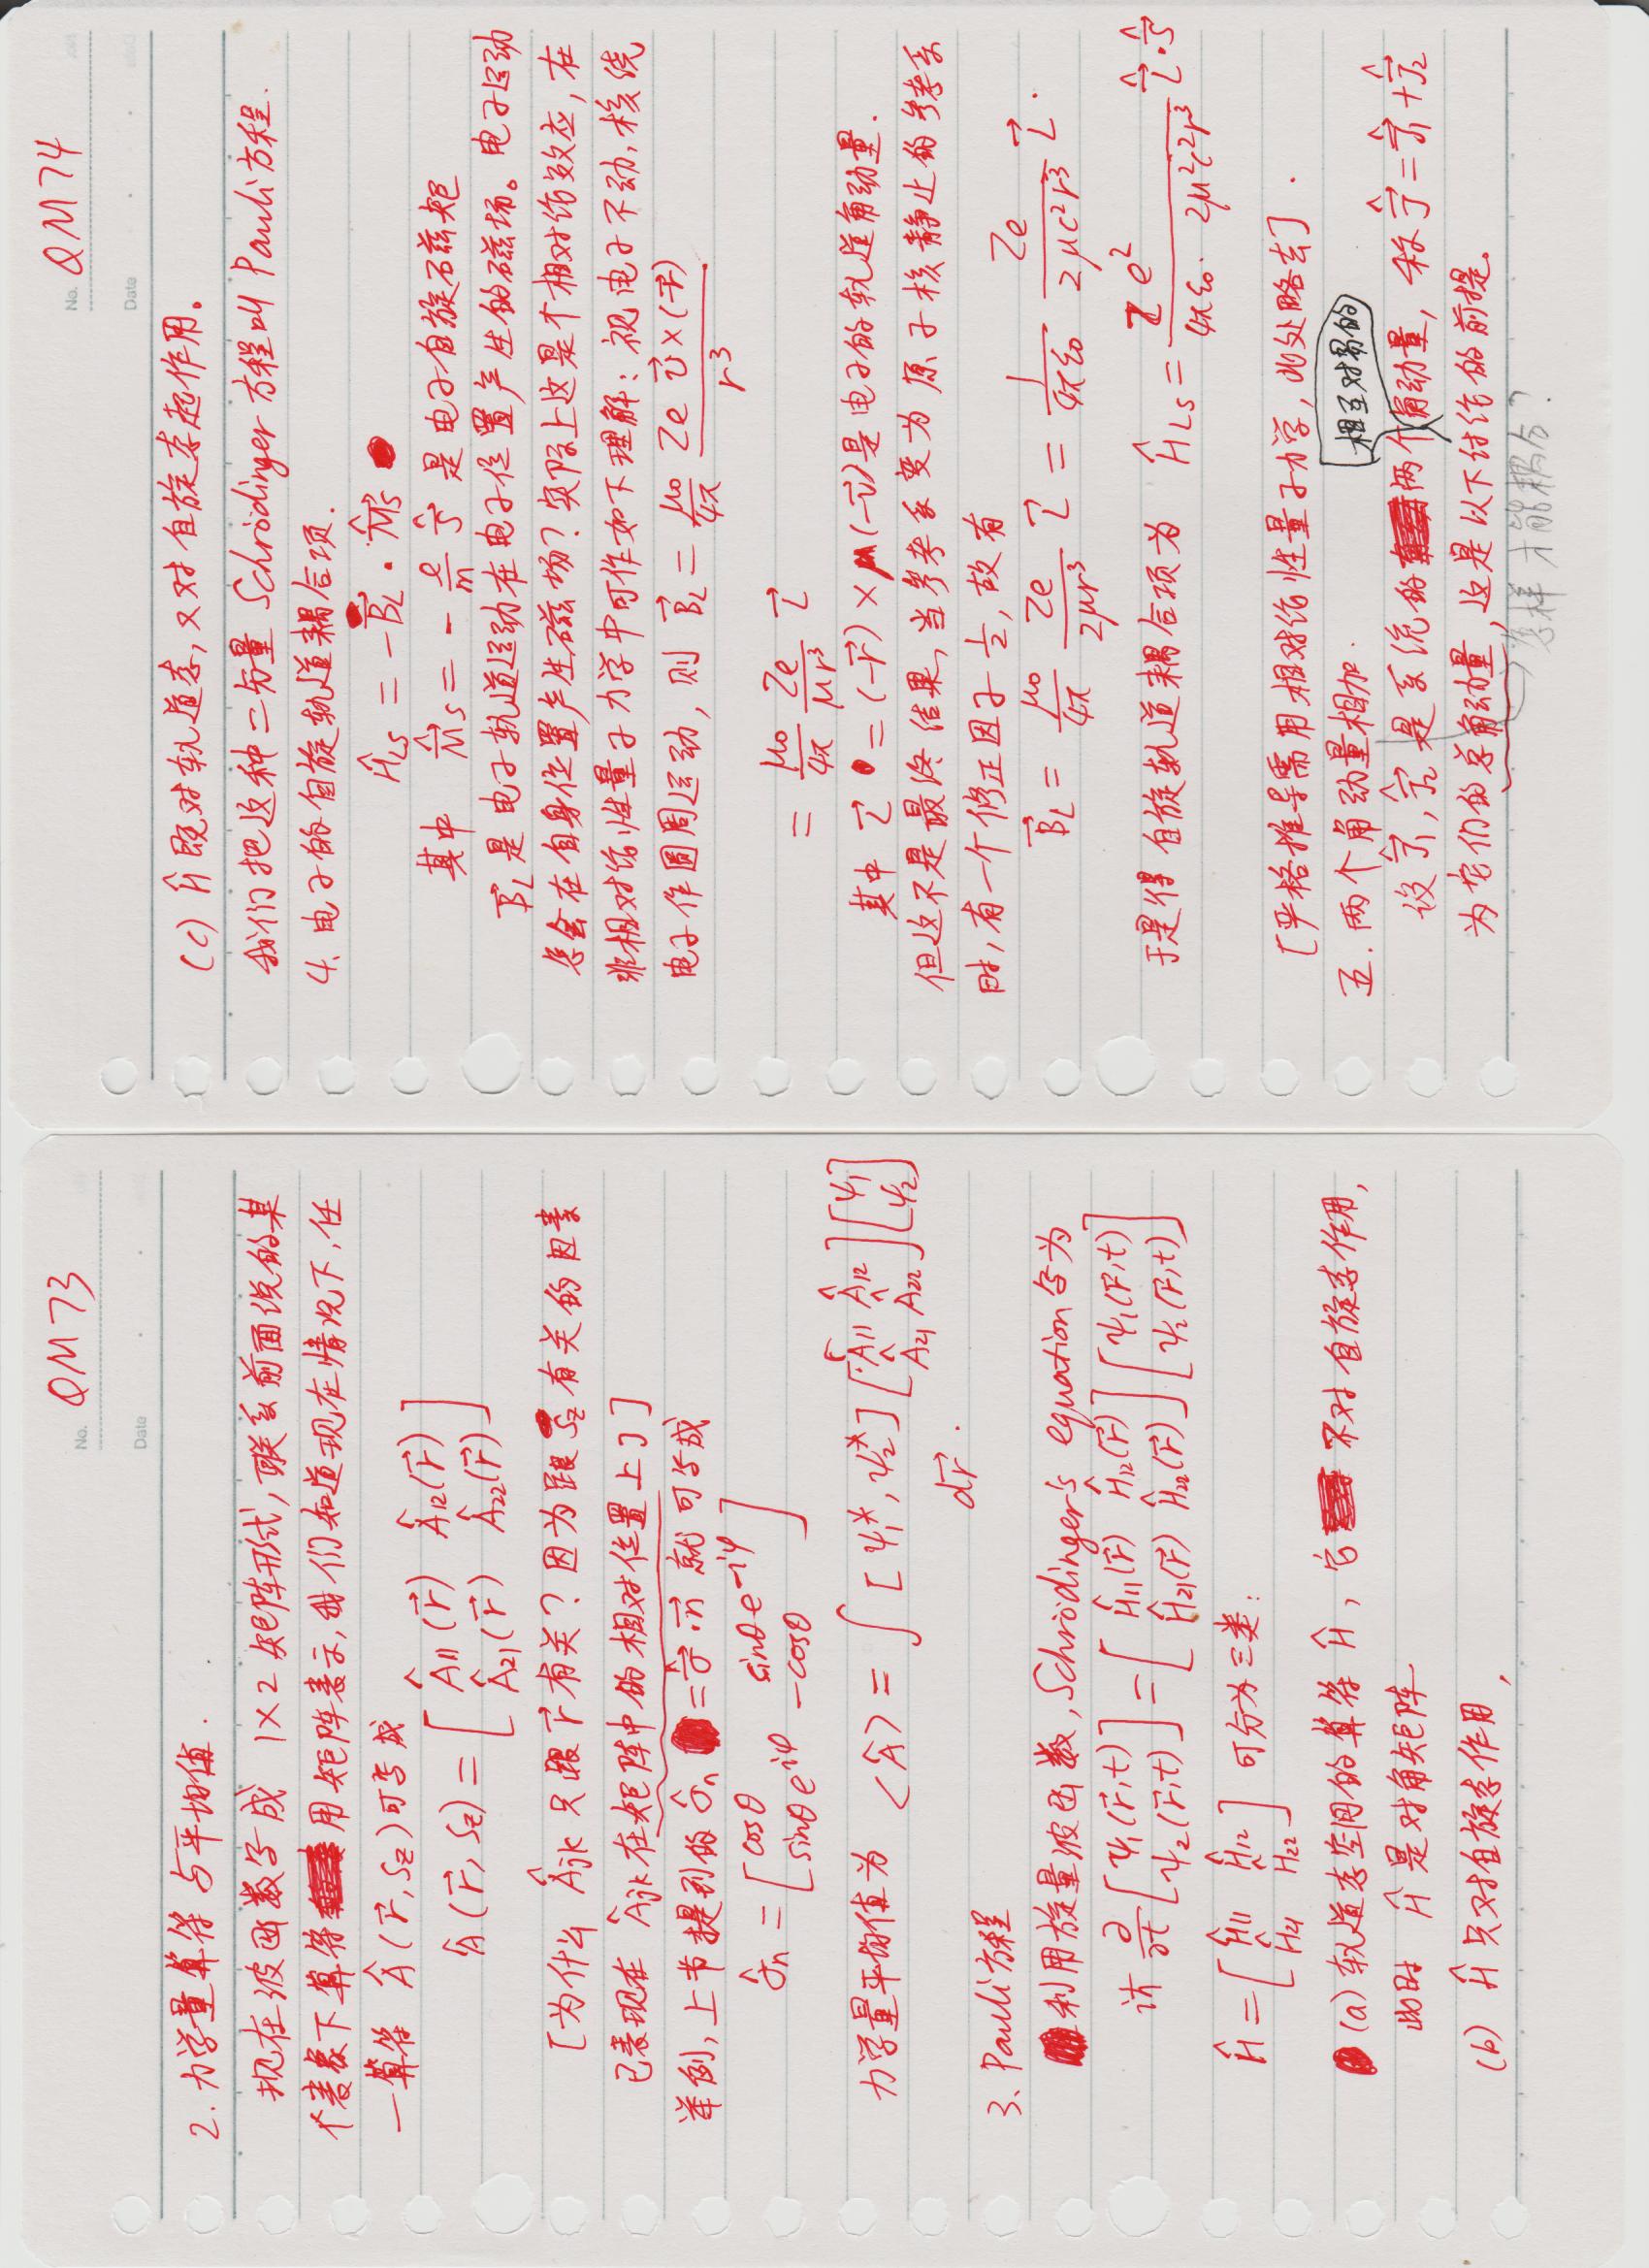 No. QM73
Date
2. 力学量算符与平均值.
现在波函数写成 1×2 矩阵形式, 联系前面说的某
个表象下算符用矩阵表示, 我们知道现在情况下, 任
一算符 Â(r⃗, Sz) 可写成
Â(r⃗, Sz) = [Â11(r⃗) Â12(r⃗)
Â21(r⃗) Â22(r⃗)]
[为什么 Âjk 只跟 r⃗ 有关? 因为跟 Sz 有关的因素
已表现在 Âjk 在矩阵中的相对位置上了]
举例, 上节提到的 σ̂n = σ̂⃗·n⃗ 就可写成
σ̂n = [cosθ sinθe^{-iφ}
sinθe^{iφ} -cosθ]
力学量平均值为 <Â> = ∫ [ψ1*, ψ2*] [Â11 Â12 Â21 Â22] [ψ1 ψ2]
dr⃗.
3、Pauli方程
利用旋量波函数, Schrödinger's equation 写为
iħ ∂/∂t [ψ1(r⃗,t) ψ2(r⃗,t)] = [Ĥ11(r⃗) Ĥ12(r⃗) Ĥ21(r⃗) Ĥ22(r⃗)] [ψ1(r⃗,t) ψ2(r⃗,t)]
Ĥ = [Ĥ11 Ĥ12 Ĥ21 Ĥ22] 可分为三类:
(a) 轨道态空间的算符 Ĥ, 它不对自旋态作用,
此时 Ĥ 是对角矩阵
(b) Ĥ 只对自旋态作用,
No. QM74
Date
(c) Ĥ 既对轨道态, 又对自旋态起作用。
我们把这种二分量 Schrödinger 方程叫 Pauli 方程.
4、电子的自旋轨道耦合项.
ĤLS = -B⃗L · M̂⃗S
其中 M̂⃗S = - e/m Ŝ⃗ 是电子自旋磁矩
B⃗L 是电子轨道运动在电子位置产生的磁场。电子运动
怎会在自身位置产生磁场? 实际上这是个相对论效应, 在
非相对论性量子力学中可作如下理解: 视电子不动, 核绕
电子作圆周运动, 则 B⃗L = μ0/4π Ze v⃗×(-r⃗)/r³
= μ0/4π Ze/μr³ L⃗
其中 L⃗ = (-r⃗) × μ(-v⃗) 是电子的轨道角动量.
但这不是最终结果, 当参考系变为原子核静止的参考系
时, 有一个修正因子 1/2, 故有
B⃗L = μ0/4π Ze/2μr³ L⃗ = 1/4πε0 Ze/2μc²r³ L⃗.
于是得自旋轨道耦合项为 ĤLS = Ze²/4πε0·2μ²c²r³ L̂⃗·Ŝ⃗
[严格推导需用相对论性量子力学, 此处略去].
五. 两个角动量相加.
相互对易的
设 Ĵ⃗1, Ĵ⃗2 是系统的两个角动量, 称 Ĵ⃗ = Ĵ⃗1 + Ĵ⃗2
为它们的总角动量, 这是以下讨论的前提。
怎样才能耦合?